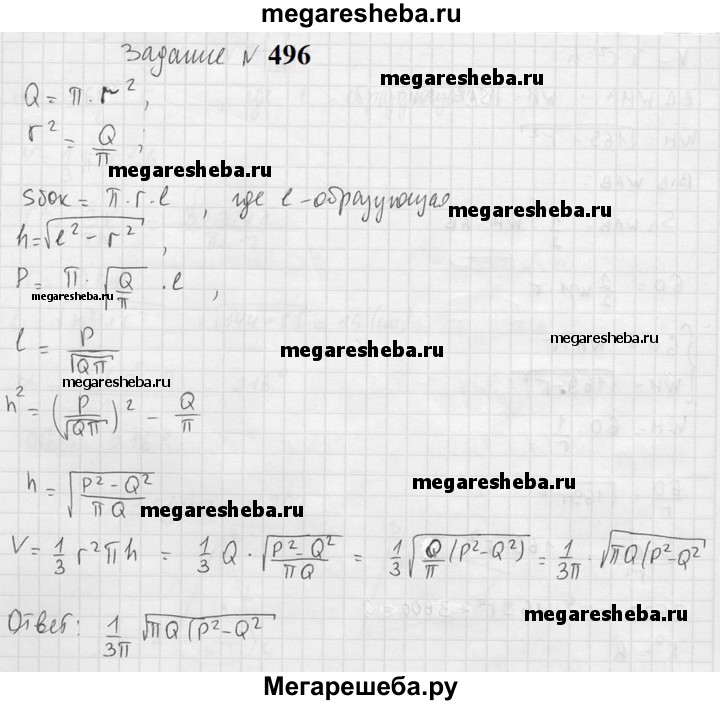 megaresheba.ru
Задание № 496
Q = π · r²,
megaresheba.ru
r² = Q/π ;
megaresheba.ru
Sбок = π · r · l , где l - образующая
megaresheba.ru
h = √(l² - r²) ,
P = π · √(Q/π) · l ,
megaresheba.ru
megaresheba.ru
l = P/√(Qπ)
megaresheba.ru
megaresheba.ru
h² = (P/√(Qπ))² - Q/π
h = √((P² - Q²)/(πQ))
megaresheba.ru
megaresheba.ru
V = 1/3 r² π h = 1/3 Q · √((P² - Q²)/(πQ)) = 1/3 √(Q/π (P² - Q²)) = 1/3π · √(πQ(P² - Q²
megaresheba.ru
megaresheba.ru
Ответ: 1/3π √(πQ(P² - Q²
megaresheba.ru
Мегарешеба.ру